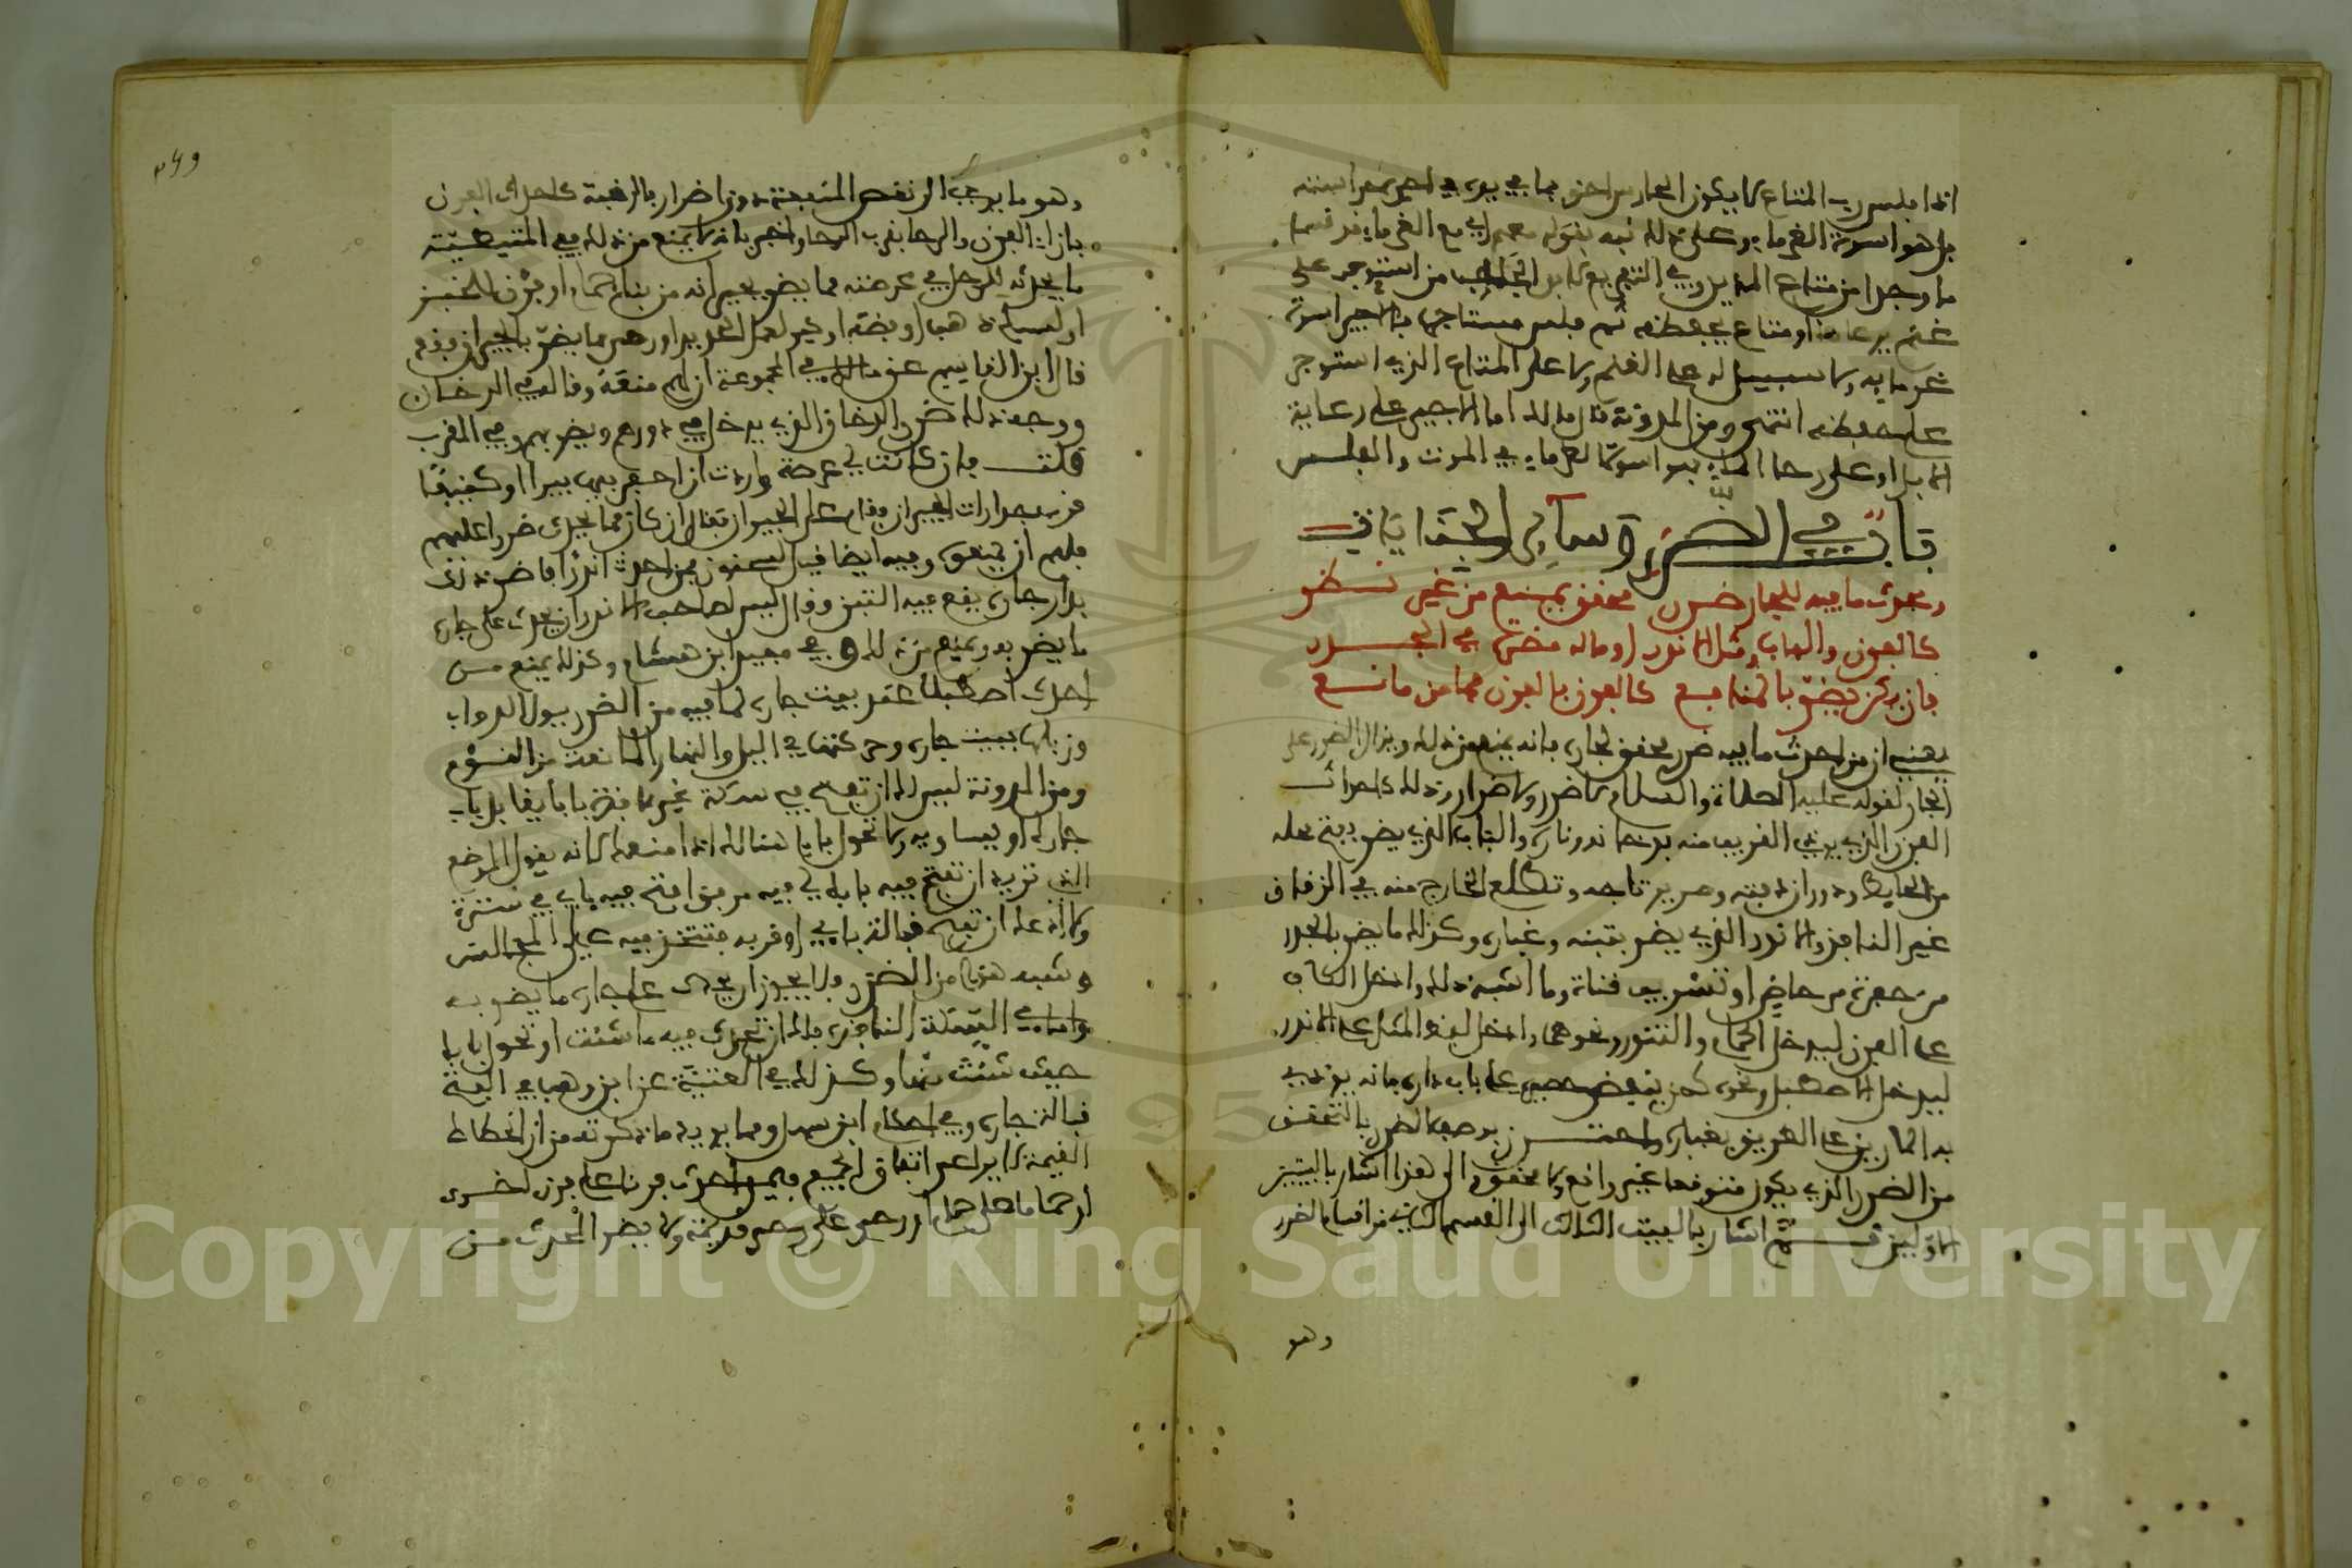 اذا فلس رب المتاع لا يكون الحارس احق بما في يده في اجرته حراسته
بل هو اسوة الغرماء وعلى ذلك نبه بقوله معهم اي مع الغرماء قد قسما
ما وجدا من متاع المديان وفي التفريع لابن الجلاب من استوجر على
غنم يرعاها او متاع يحفظه ثم فلس مستاجره فالاجير اسوة
غرمايه ولا سبيل له على الغنم ولا على المتاع الذي استوجر
على حفظه انتهى ومن المدونة قال مالك اما الاجير على رعاية
الابل او على رحا الماء فهو اسوة الغرماء في الموت والفلس
باب في الضرر وسائر الجنايات
ومحدث ما فيه للجار ضرر محقق يمنع من غير نظر
كالفرن والباب ومثل الاندر او ماله مضرة في الجدر
فان يكن يضر بالمنافع كالفرن بالفرن فما من مانع
يعني ان من احدث ما فيه ضرر محقق لجاره فانه يمنع من ذلك ويزال الضرر على
الجار لقوله عليه الصلاة والسلام لا ضرر ولا ضرار وذلك كاحداث
الفرن الذي يوذي القريب منه بدخانه وناره والباب الذي يضر بفتح محله
من الحايط ودوران دفتيه وصرير تاجه وتطلع الخارج منه في الزقاق
غير النافذ والاندر الذي يضر بتبنه وغباره وكذلك ما يضر بالجدر
من حفرة مرحاض او تسريب قناة وما اشبه ذلك وادخل الكاف
على الفرن ليدخل الحمام والتنور ونحوهما وادخل لفظ المثل على الاندر
ليدخل الاصطبل ونحوه كمن ينفض حصير على باب داره فانه يوذي
به المارين على الطريق بغباره واحترز بوصف الضرر بالتحقق
من الضرر الذي يكون متوقعا غير واقع ولا محقق والى هذا اشار بالبيتين
الاولين ثم اشار بالبيت الثالث الى القسم الثاني من اقسام الضرر
وهو
٢٦٩
وهو ما يوجب الا نقص المنفعة دون اضرار بالرقبة كاحداث الفرن
بازاء الفرن والرحا بقرب الرحا واخبر بانه لا يمنع من ذلك ففي المتيطية
ما يحدثه الرجل في عرصته مما يضر بجيرانه من بناء حمام او فرن للخبز
او لسبك ذهب او فضة او كير لعمل الحديد او رحى مما يضر بالجيران
قال ابن القاسم عن مالك في المجموعة ان لهم منعه وقاله في الدخان
ووجه ذلك ضرر الدخان الذي يدخل في دورهم ويضر بهم وفي المقرب
قلت فان كانت لي عرصة واردت ان احفر فيها بيرا او كنيفا
قرب جدارات الجيران وقام علي الجيران فقال ان كان مما يحدث ضررا عليهم
فلهم ان يمنعوك وفيه ايضا قيل لسحنون فمن احدث اندرا فاضر ذلك
بدار جاره يقع فيه التبن وقال ليس لصاحب الاندر ان يحدث على جاره
ما يضر به ويمنع من ذلك وفي مفيد ابن هشام وكذلك يمنع من
احدث اصطبلا عند بيت جاره لما فيه من الضرر ببول الدواب
وزبلها ببيت جاره وحركتها في الليل والنهار المانعة من النوم
ومن المدونة ليس لك ان تفتح في سكة غير نافذة بابا يقابل باب
جارك او يساويه ولا تحول بابا هنالك اذا منعك لانه يقول الموضع
الذي تريد ان تفتح فيه بابك لي فيه مرفق افتح فيه بابي في سترة
ولا ادعك ان تفتح قبالة بابي او قربه فتتخذ فيه علي المجالس
وشبه هذا من الضرر ولا يجوز ان يحدث على جاره ما يضر به
واما في السكة النافذة فلك ان تحدث فيه ما شئت او تحول بابا
حيث شئت منها وكذلك في العتبية عن ابن وهب في الفتح
قبالة جاره وفي احكام ابن سهل ومما يريد ما ذكرته من ان انحطاط
القيمة لا يراعى اتفاق الجميع فيمن احدث فرنا على فرن اخر
او حماما على حمام او رحى على رحى قديمة ولا يضر المحدث من
Copyright © King Saud University